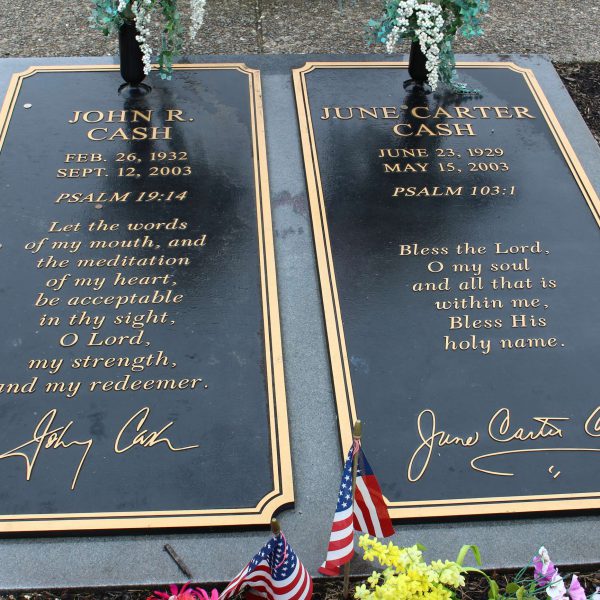 JOHN R.
CASH
FEB. 26, 1932
SEPT. 12, 2003
PSALM 19:14
Let the words
of my mouth, and
the meditation
of my heart,
be acceptable
in thy sight,
O Lord,
my strength,
and my redeemer.
John Cash
JUNE CARTER
CASH
JUNE 23, 1929
MAY 15, 2003
PSALM 103:1
Bless the Lord,
O my soul
and all that is
within me,
Bless His
holy name.
June Carter